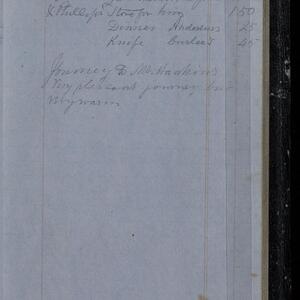 & Phillips Stove for 1.50
Dinner Anderson 25
Knife 45
Journey to Mt Hawkins
Very pleasant journey but
very warm